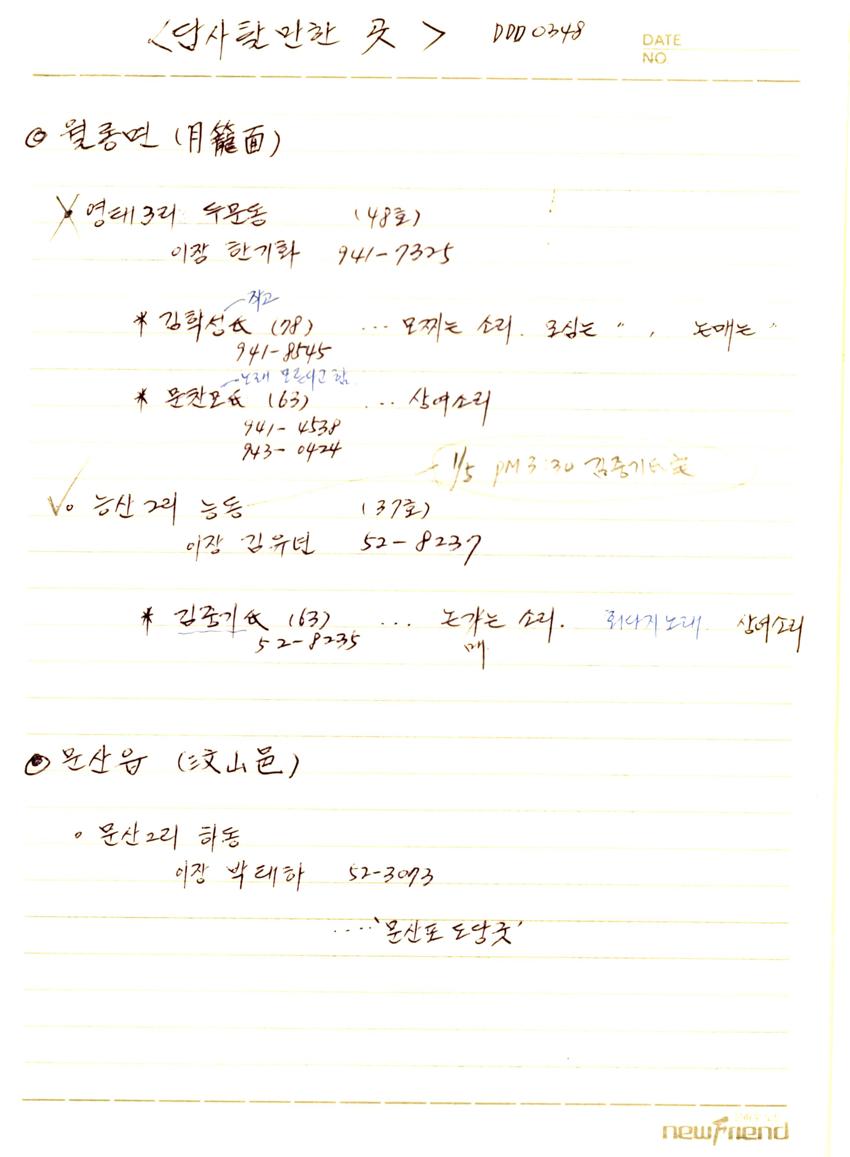 <답사할 만한 곳> DDD 0348
DATE
NO.
◎ 월롱면 (月籠面)
영태3리 두문동 (48호)
이장 한기화 941-7325
작고
* 김학성氏 (78) ... 모찌는 소리. 모심는 〃, 논매는 〃
941-8545
노래 모른다고 함.
* 문찬모氏 (63) ... 상여소리
941-4538
943-0424
1/5 PM 3:30 김중기氏
능산2리 능동 (37호)
이장 김유년 52-8237
* 김중기氏 (63) ... 논가는 소리. 회다지노래. 상여소리
매
52-8235
◎ 문산읍 (汶山邑)
문산2리 하동
이장 박태하 52-3073
....'문산포 도당굿'
newFriend